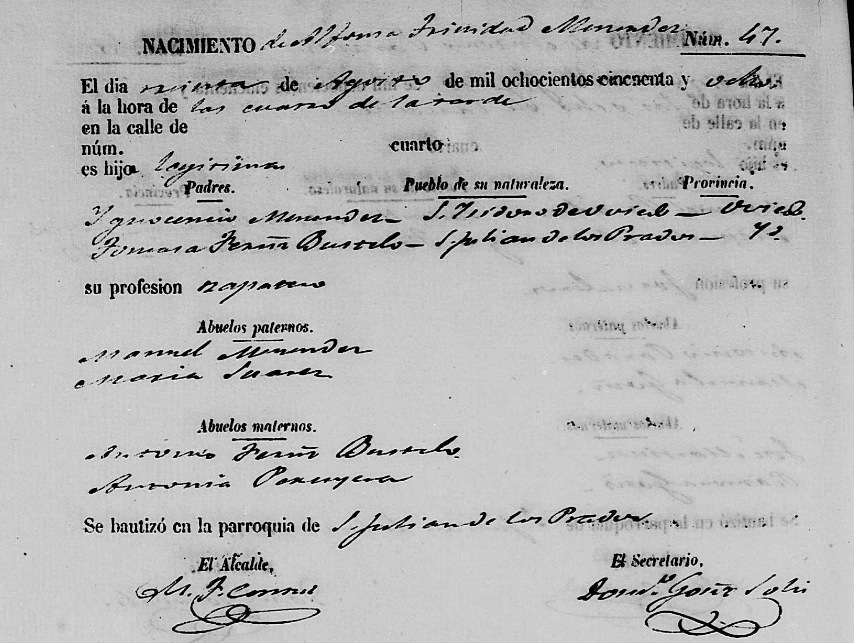 NACIMIENTO de Alfonsa Trinidad Menendez Núm. 47.
El dia treinta de Agosto de mil ochocientos cincuenta y ocho
á la hora de las cuatro de la tarde
en la calle de
núm. cuarto
es hijo legitima
Padres. Pueblo de su naturaleza. Provincia.
Ygnocencio Menendez — S. Isidoro de Oviedo — Oviedo.
Tomasa Fernz Bustelo — S. Julian de los Prados — Yd.
su profesion zapatero
Abuelos paternos.
Manuel Menendez
Maria Suarez
Abuelos maternos.
Antonio Fernz Bustelo.
Antonia
Se bautizó en la parroquia de S. Julian de los Prados
El Alcalde, El Secretario,
M. F. Gonz